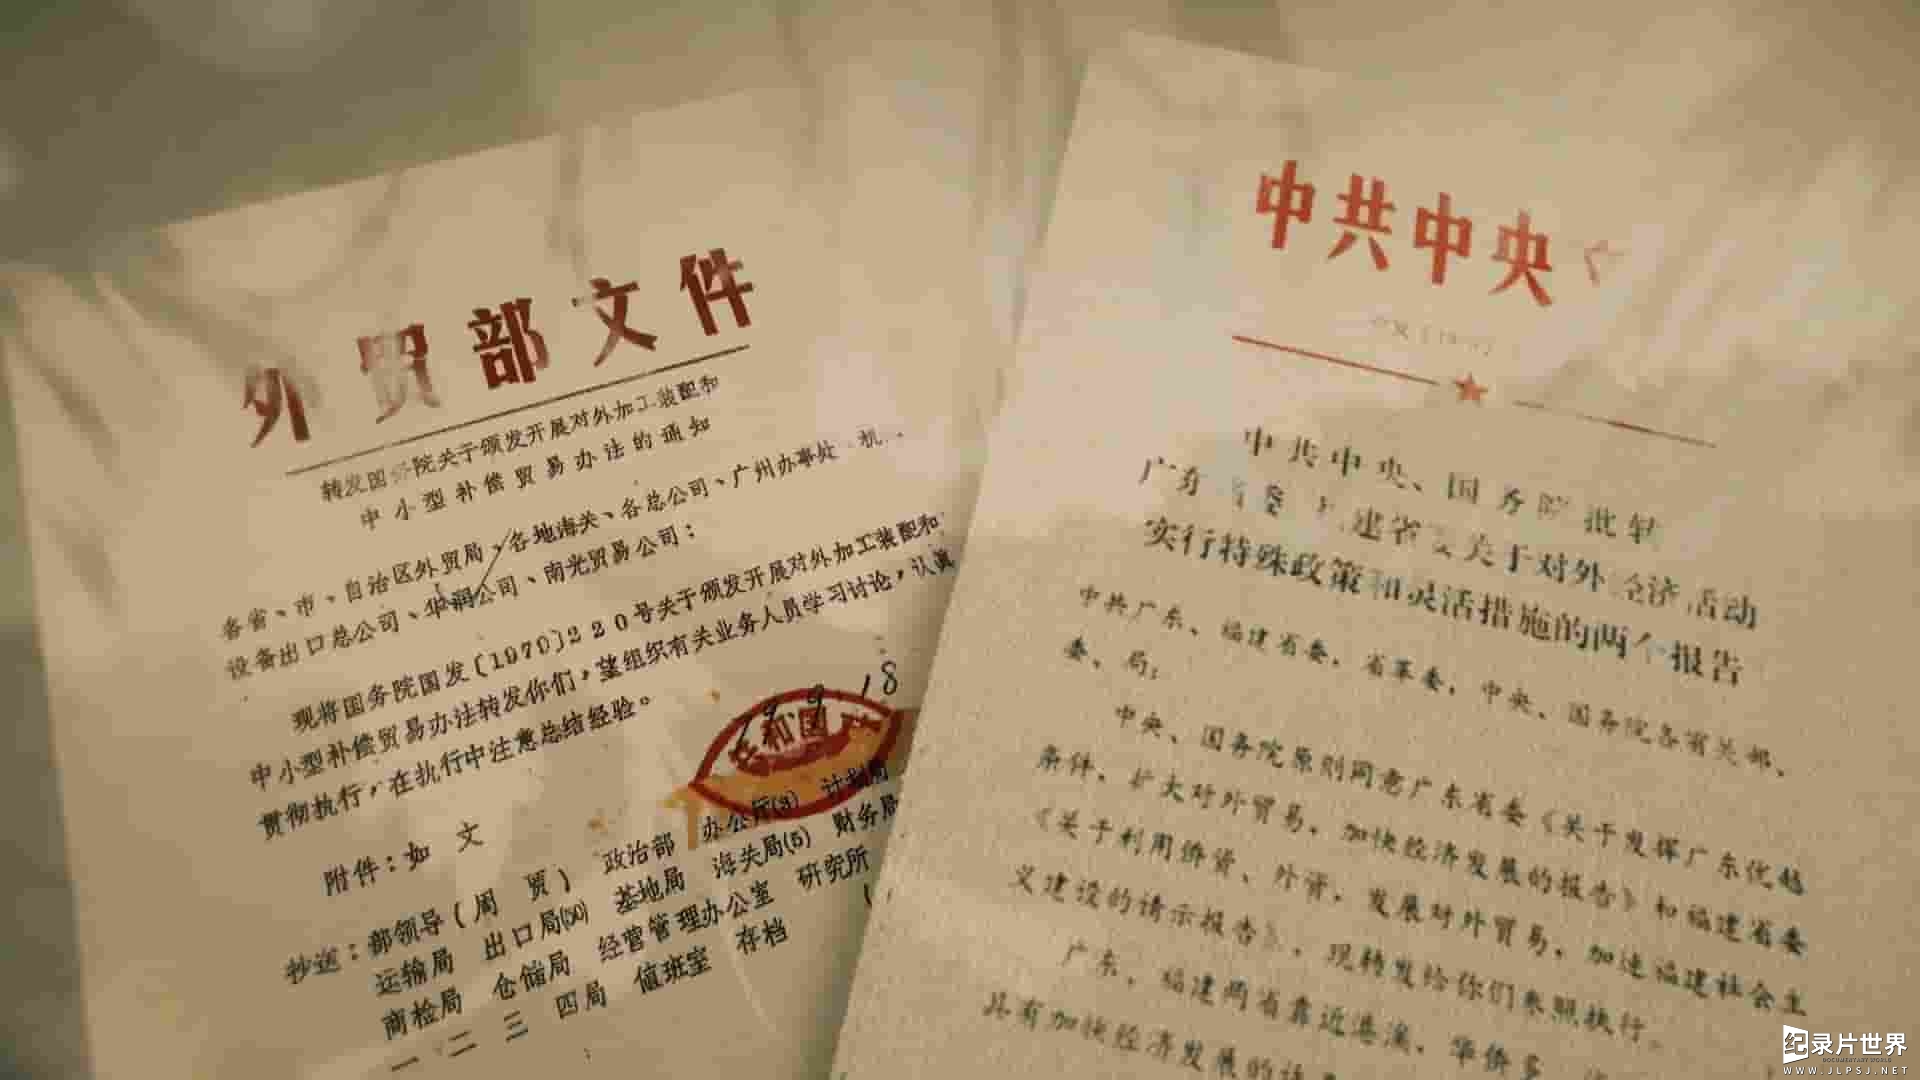 外贸部文件
转发国务院关于颁发开展对外加工装配和
中小型补偿贸易办法的通知
各省、市、自治区外贸局，各地海关、各总公司、广州办事处 机
设备出口总公司、华润公司、南光贸易公司：
现将国务院国发〔1970〕220号关于颁发开展对外加工装配和
中小型补偿贸易办法转发你们，望组织有关业务人员学习讨论，认真
贯彻执行，在执行中注意总结经验。
79.9.18
共和国
附件：如文
抄送：部领导（周 贾） 政治部 办公厅(3) 计划局
运输局 出口局(50) 基地局 海关局(5) 财务局
商检局 仓储局 经营管理办公室 研究所
一 二 三 四局 值班室 存档
中共中央
中共中央、国务院批转
广东省委、福建省委关于对外经济活动
实行特殊政策和灵活措施的两个报告
中共广东、福建省委，省革委，中央、国务院各有关部、
委、局：
中央、国务院原则同意广东省委《关于发挥广东优越
条件，扩大对外贸易，加快经济发展的报告》和福建省委
《关于利用侨资、外资，发展对外贸易，加速福建社会主
义建设的请示报告》，现转发给你们来照执行。
广东，福建两省靠近港澳，华侨多
具有加快经济发展的
纪录片世界
DOCUMENTARY WORLD
WWW.JLPSJ.NET